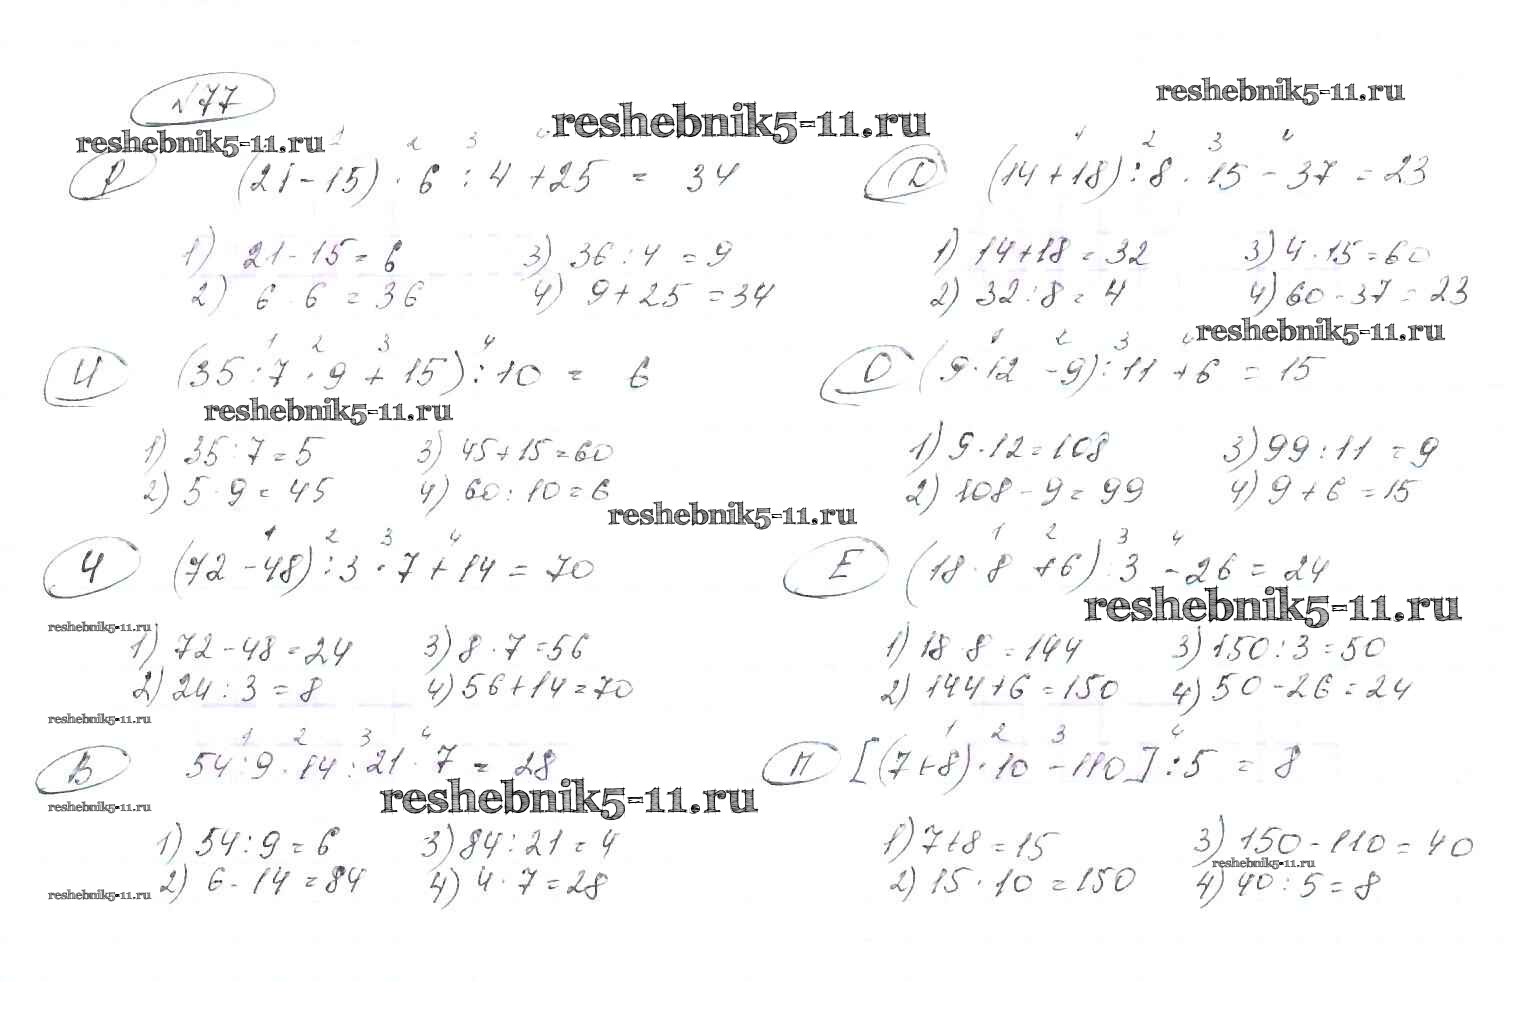 №77
reshebnik5-11.ru
reshebnik5-11.ru
reshebnik5-11.ru
1 2 3 4
Р (21-15) · 6 : 4 + 25 = 34
1) 21-15=6 3) 36:4=9
2) 6·6=36 4) 9+25=34
1 2 3 4
Д (14+18):8·15-37=23
1) 14+18=32 3) 4·15=60
2) 32:8=4 4) 60-37=23
reshebnik5-11.ru
1 2 3 4
И (35:7·9+15):10=6
reshebnik5-11.ru
1) 35:7=5 3) 45+15=60
2) 5·9=45 4) 60:10=6
1 2 3 4
О (9·12-9):11+6=15
1) 9·12=108 3) 99:11=9
2) 108-9=99 4) 9+6=15
reshebnik5-11.ru
1 2 3 4
Ч (72-48):3·7+14=70
reshebnik5-11.ru
1) 72-48=24 3) 8·7=56
2) 24:3=8 4) 56+14=70
1 2 3 4
Е (18·8+6):3-26=24
reshebnik5-11.ru
1) 18·8=144 3) 150:3=50
2) 144+6=150 4) 50-26=24
reshebnik5-11.ru
1 2 3 4
В 54:9·14:21·7=28
reshebnik5-11.ru
reshebnik5-11.ru
1) 54:9=6 3) 84:21=4
2) 6·14=84 4) 4·7=28
reshebnik5-11.ru
1 2 3 4
М [(7+8)·10-110]:5=8
1) 7+8=15 3) 150-110=40
reshebnik5-11.ru
2) 15·10=150 4) 40:5=8